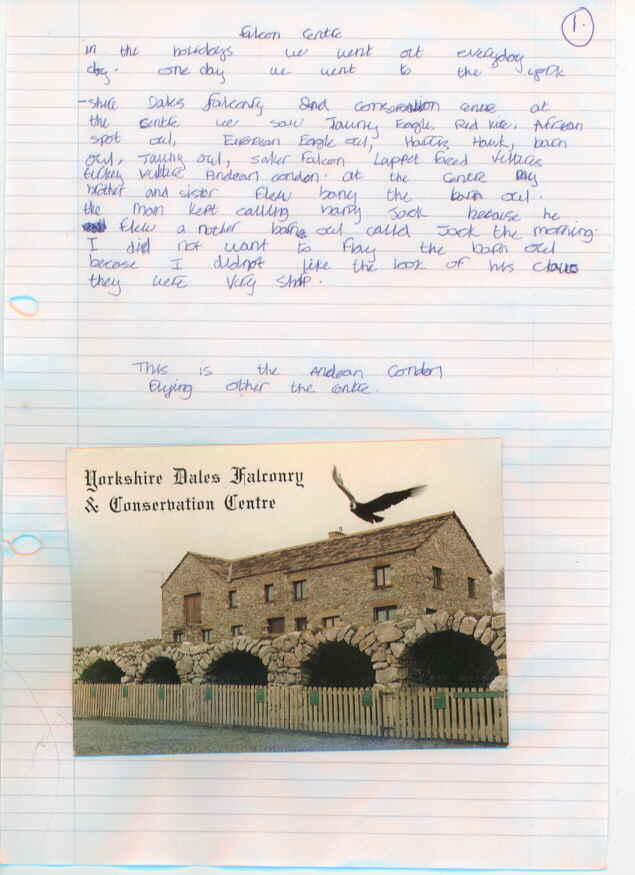 Falcon Centre
1.
in the holidays we went out everyday
day. one day we went to the york
-shire Dales falconry and conservation cenre at
the centre we saw Tawny Eagle, Red kite, African
spot owl, European Eagle owl, Harris Hawk, barn
owl, Tawny owl, saker Falcon Lappet faced vultures
turkey vulture Andean condon. at the centre my
brother and sister flew barry the barn owl.
the man kept calling barry Jack because he
flew a nother barn owl called Jack the morning.
I did not want to flay the barn owl
becose I didnot like the look of his claws
they were very sharp.
This is the Andean Condon
flying other the centre.
Yorkshire Dales Falconry
& Conservation Centre